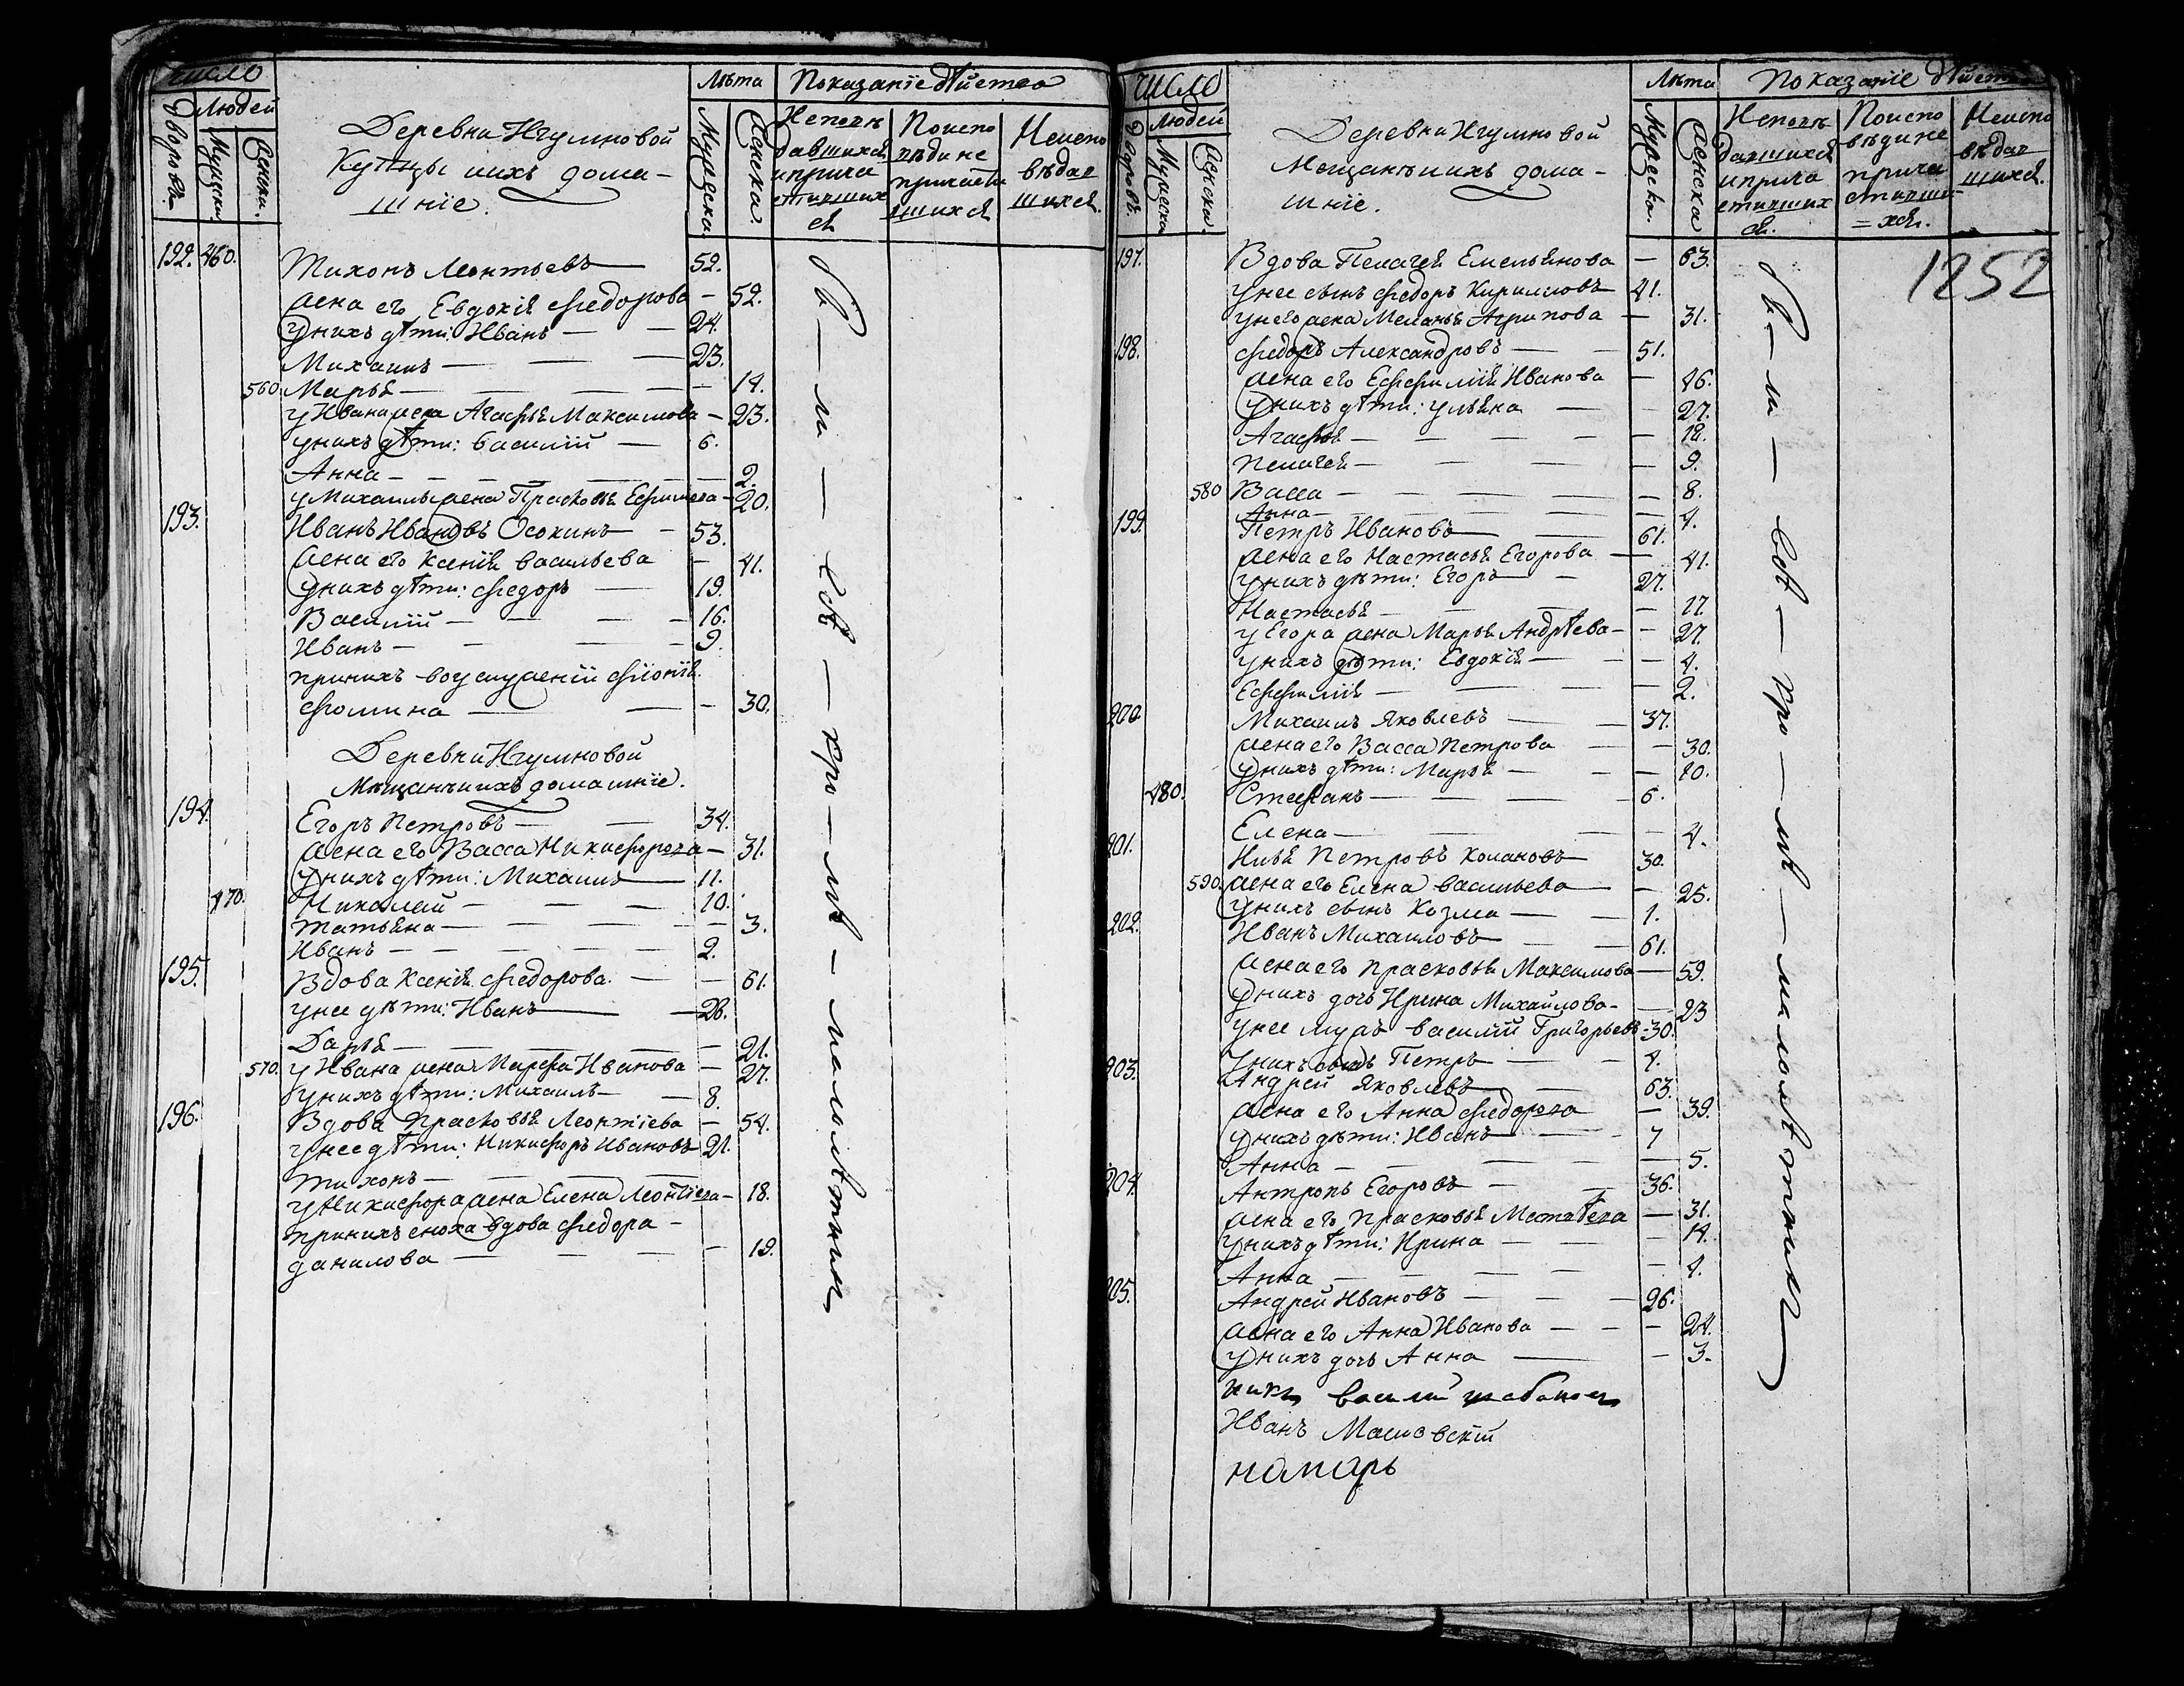 Число
Людей
Дворовъ.
Мужеска.
Женска.
Деревни Игумновой
Купцы иихъ дома-
шніе.
Лѣта
Мужеска.
Женска.
Показаніе дѣйства
Исповѣ
давшихся
иприча
стивших
ся
Поиспо
вѣди не
причасти
вшихся
Неиспо
вѣдав
шихся.
192. 460. Тихонъ Леонтьевъ — 52.
жена его Евдокія Федорова — 52.
Унихъ дѣти: Иванъ — 24.
Михаилъ — 23.
560 Марья — 14.
У Ивана жена Агафья Максимова — 23.
унихъ дѣти: Василій — 6.
Анна — 2.
У Михаилы жена Прасковья Ефимова — 20.
193. Иванъ Ивановъ Осокинъ — 53.
жена его Ксенія Васильева — 41.
Унихъ дѣти: Федоръ — 19.
Василій — 16.
Иванъ — 9.
принихъ воуслуженіи Фіонія
Фомина — 30.
Деревни Игумновой
Мѣщанъ иихъ домашніе.
194. Егоръ Петровъ — 34.
жена его Васса Никифорова — 31.
Унихъ дѣти: Михаилъ — 11.
470. Николай — 10.
Татьяна — 3.
Иванъ — 2.
195. Вдова Ксенія Федорова — 61.
унее дѣти: Иванъ — 28.
Дарья — 21.
570. у Ивана жена Марфа Иванова — 27.
Унихъ дѣти: Михаилъ — 8.
196. Вдова Прасковья Леонтіева — 54.
унее дѣти: Никифоръ Ивановъ 21.
Тихонъ —
у Никифора жена Елена Леонтіева — 18.
принихъ сноха вдова Федора —
данилова — 19.
бы — ли — всѣ — кро — мѣ — малолѣтнихъ
Число
Людей
Дворовъ.
Мужеска
Женска.
Деревни Игумновой
Мещанъ иихъ дома-
шніе.
Лѣта
Мужеска.
Женска
Показаніе дѣйства
Исповѣ
давшихся
иприча
стивших
ся.
Поиспо
вѣди не
прича
стивши-
=хся.
Неиспо
вѣдав
шихся.
1252
197. Вдова Пелагея Емельянова — 63.
унее сынъ Федоръ Кириловъ 41.
унего жена Меланья Агрипова — 31.
198. Федоръ Александровъ — 51.
жена его Ефимія Иванова — 46.
Унихъ дѣти: Ульяна — 27.
Агафья — 18.
Пелагея — 9.
580 Васса — 8.
Анна — 4.
199. Петръ Ивановъ — 61.
жена его Настасья Егорова — 41.
Унихъ дѣти: Егоръ — 27.
Настасья — 17.
у Егора жена Марья Андрѣева — 27.
унихъ дѣти: Евдокія — 4.
Ефимія — 2.
200. Михаилъ Яковлевъ — 37.
жена его Васса Петрова — 30.
Унихъ дѣти: Марья — 10.
480. Стефанъ — 6.
Елена — 4.
201. Илья Петровъ — 30.
590. жена его Елена Васильева — 25.
Унихъ сынъ Козма — 1.
202. Иванъ Михаиловъ — 61.
жена его Прасковья Максимова — 59.
Унихъ дочь Ирина Михайлова — 23
унее мужъ Василій Григорьевъ — 30.
Унихъ сынъ Петръ — 4.
203. Андрей Яковлевъ — 63.
жена его Анна Федорова — 39.
Унихъ дѣти: Иванъ — 7
Анна — 5.
204. Антропъ Егоровъ — 36.
жена его Прасковья Матвѣева — 31.
Унихъ дѣти: Ирина — 14.
Анна — 4.
205. Андрей Ивановъ — 26.
жена его Анна Иванова — 24.
Унихъ дочь Анна — 3.
бы — ли — всѣ — кро — мѣ — малолѣтнихъ
Иванъ
номарь